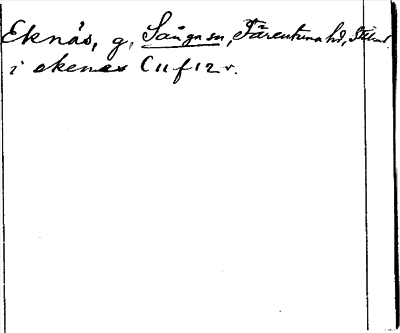 Eknäs, g, Sånga sn, Färentuna hd, Sthm l.
i ekenes C 11 f 12 v.